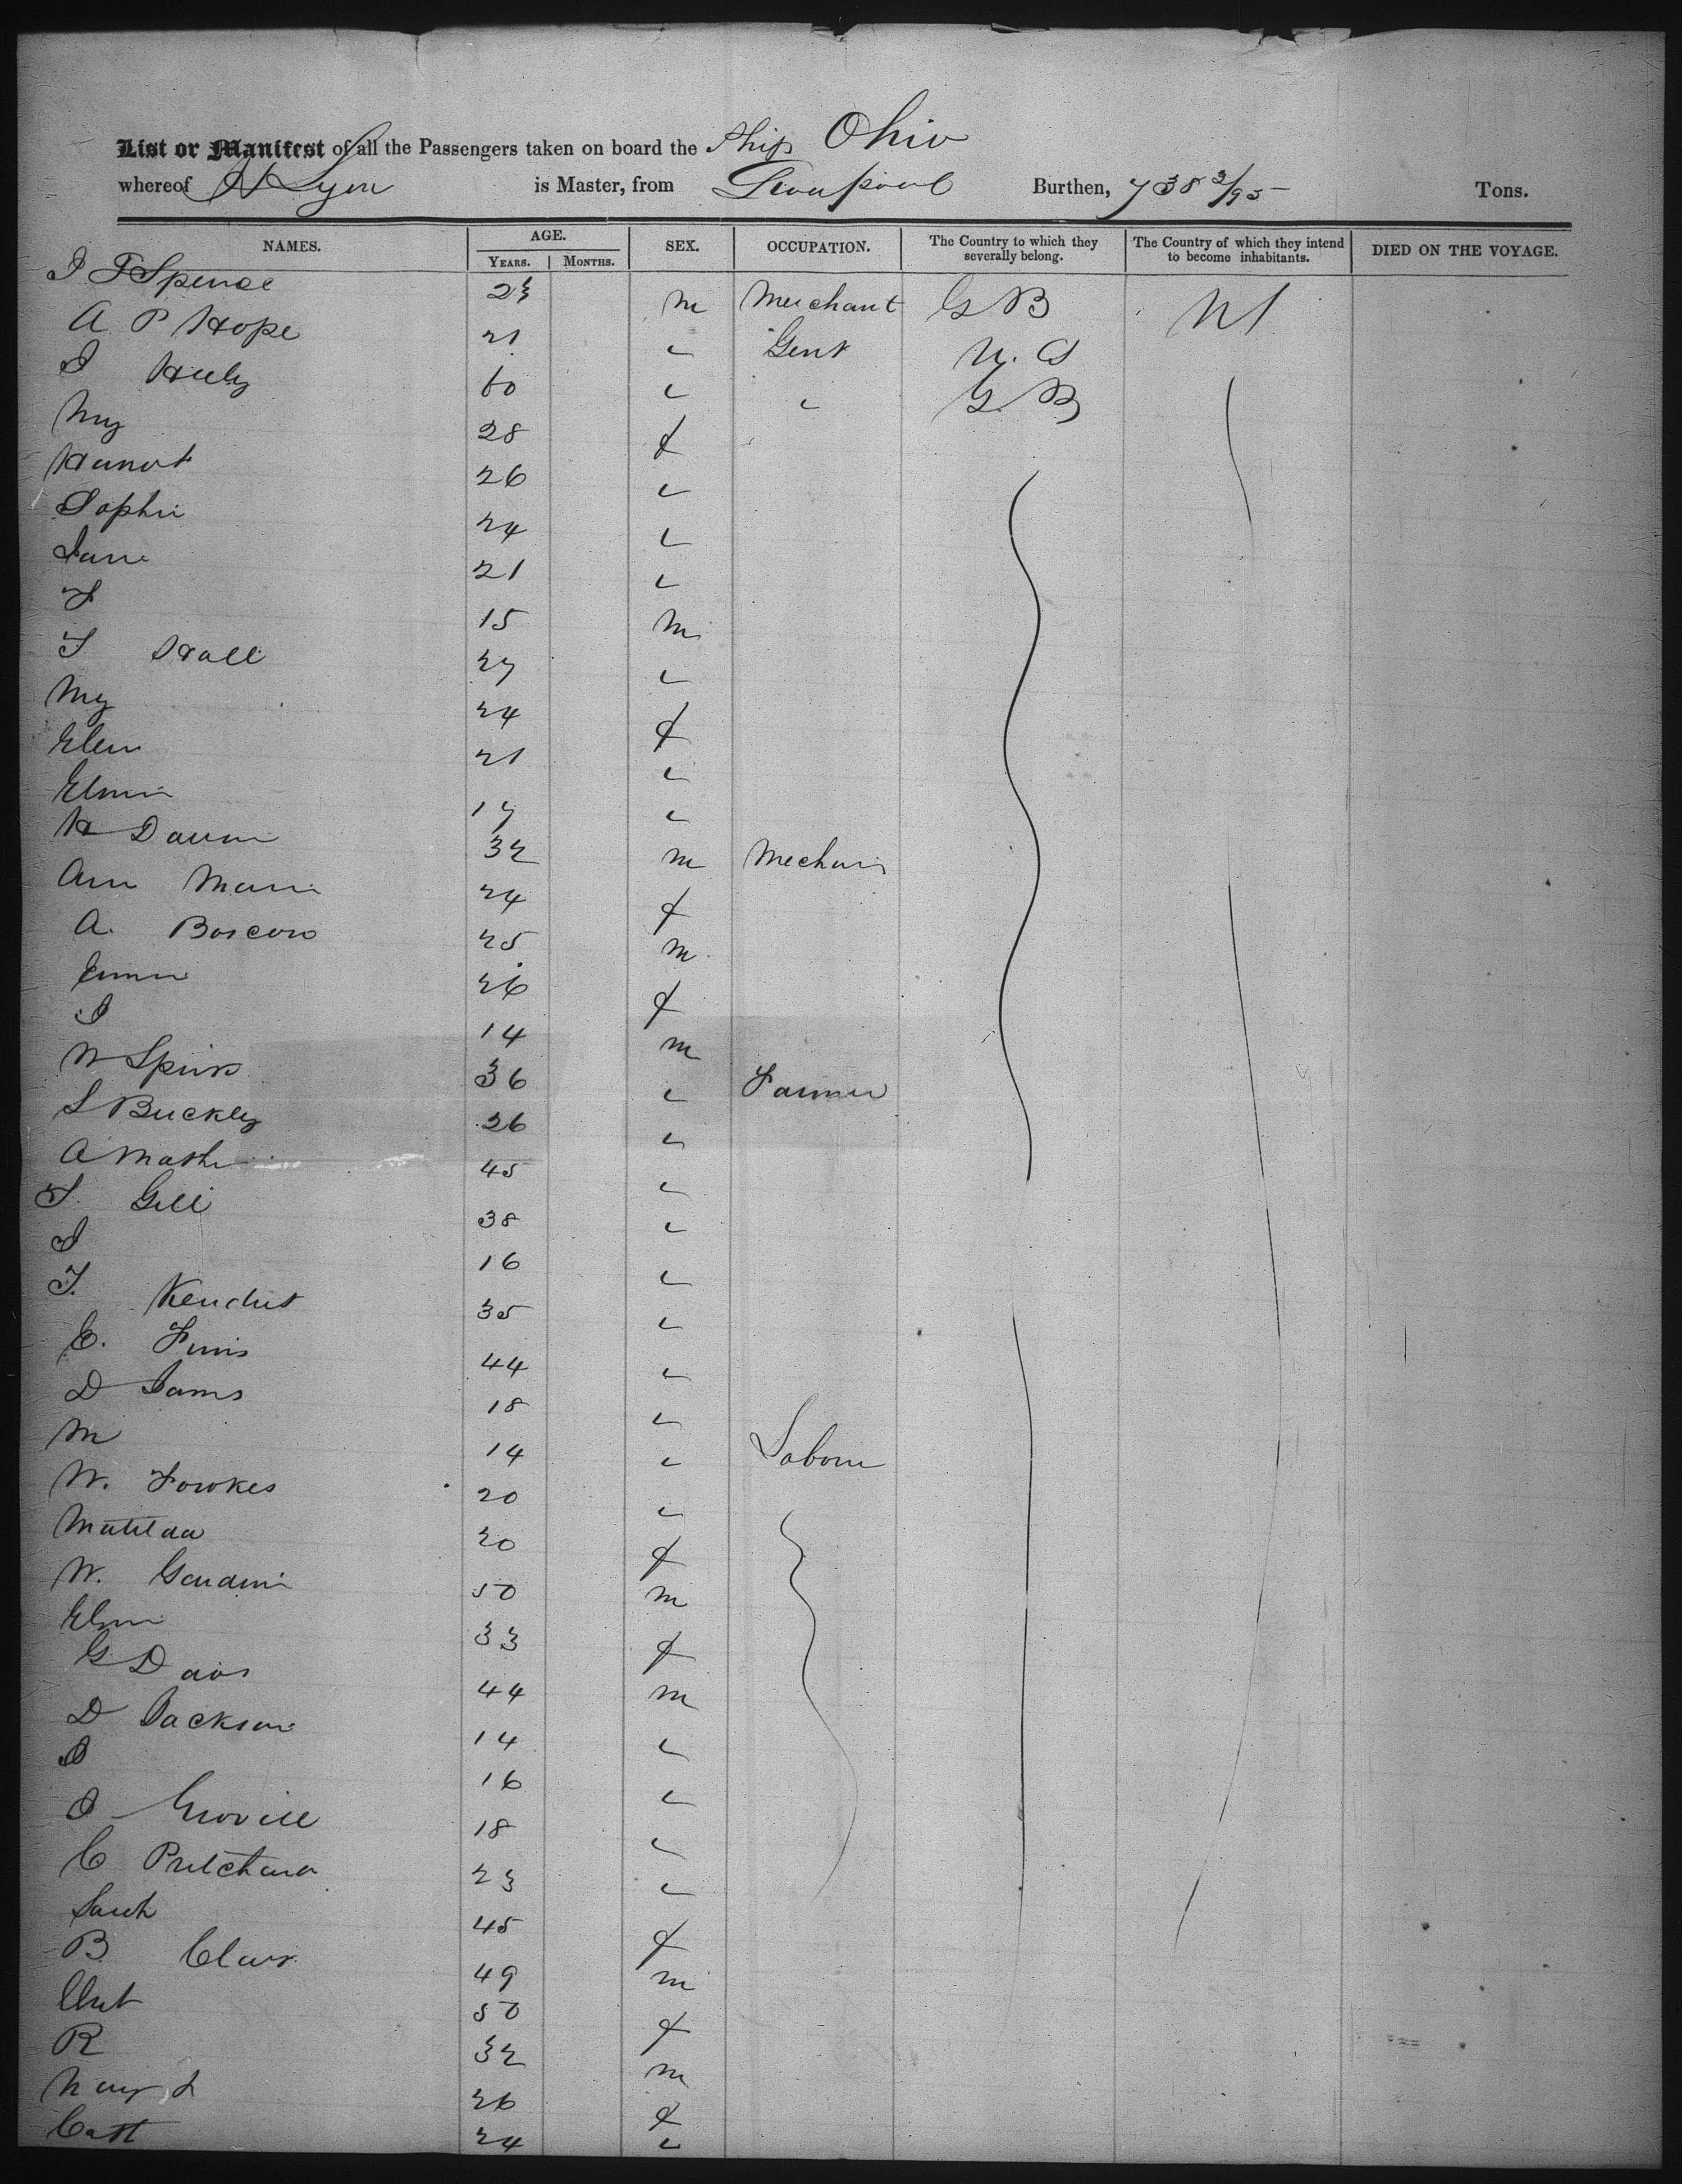 List or Manifest of all the Passengers taken on board the Ship Ohio
whereof H Lyon is Master, from Liverpool Burthen, 738 2/95 Tons.
NAMES. AGE. SEX. OCCUPATION. The Country to which they severally belong. The Country of which they intend to become inhabitants. DIED ON THE VOYAGE.
YEARS. MONTHS.
J F Spence 23 m Merchant G B
A. P Hope 21 " Gent U. S
J Huly 60 " " G. B
My 28 f
Hanot 26 "
Sophi 24 "
Jane 21 "
T 15 m
T Hall 27 "
My 24 f
Elen 21 "
Elmi 17 "
H Daum 32 m Mechani
Ann Mari 24 f
A. Boscow 25 m
Emm 26 f
J 14 m
W Spinx 36 " Farmer
S Buckley 26 "
A Math 45 "
T. Gill 38 "
J 16 "
T. Kenchut 35 "
E. Finis 44 "
D James 18 "
M 14 " Labour
W. Fowkes 20 "
Matilda 20 f
W. Gaudin 50 m
Elm 33 f
G Davis 44 m
D Jackson 14 "
J 16 "
J Grovill 18 "
C Pritchard 23 "
Sarah 45 f
B Clar 49 m
Chrt 50 f
R 32 m
26 f
Cath 24 "